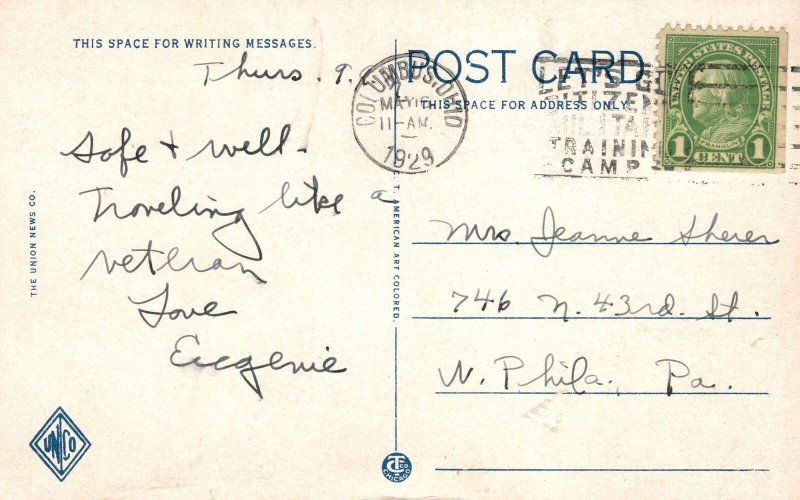 THIS SPACE FOR WRITING MESSAGES.
Thurs.
Safe + well-
Traveling like a
veteran
Love
Eugenie
THE UNION NEWS CO.
UNCO
C. T. AMERICAN ART COLORED.
POST CARD
THIS SPACE FOR ADDRESS ONLY.
COLUMBUS, OHIO
MAY 16
11-AM.
1929
LET'S GO
CITIZENS
MILITARY
TRAINING
CAMP
UNITED STATES POSTAGE
FRANKLIN
1 CENT 1
Mrs. Jeanne Sherer
746 N. 43rd. St.
W. Phila., Pa.
CT CO
CHICAGO